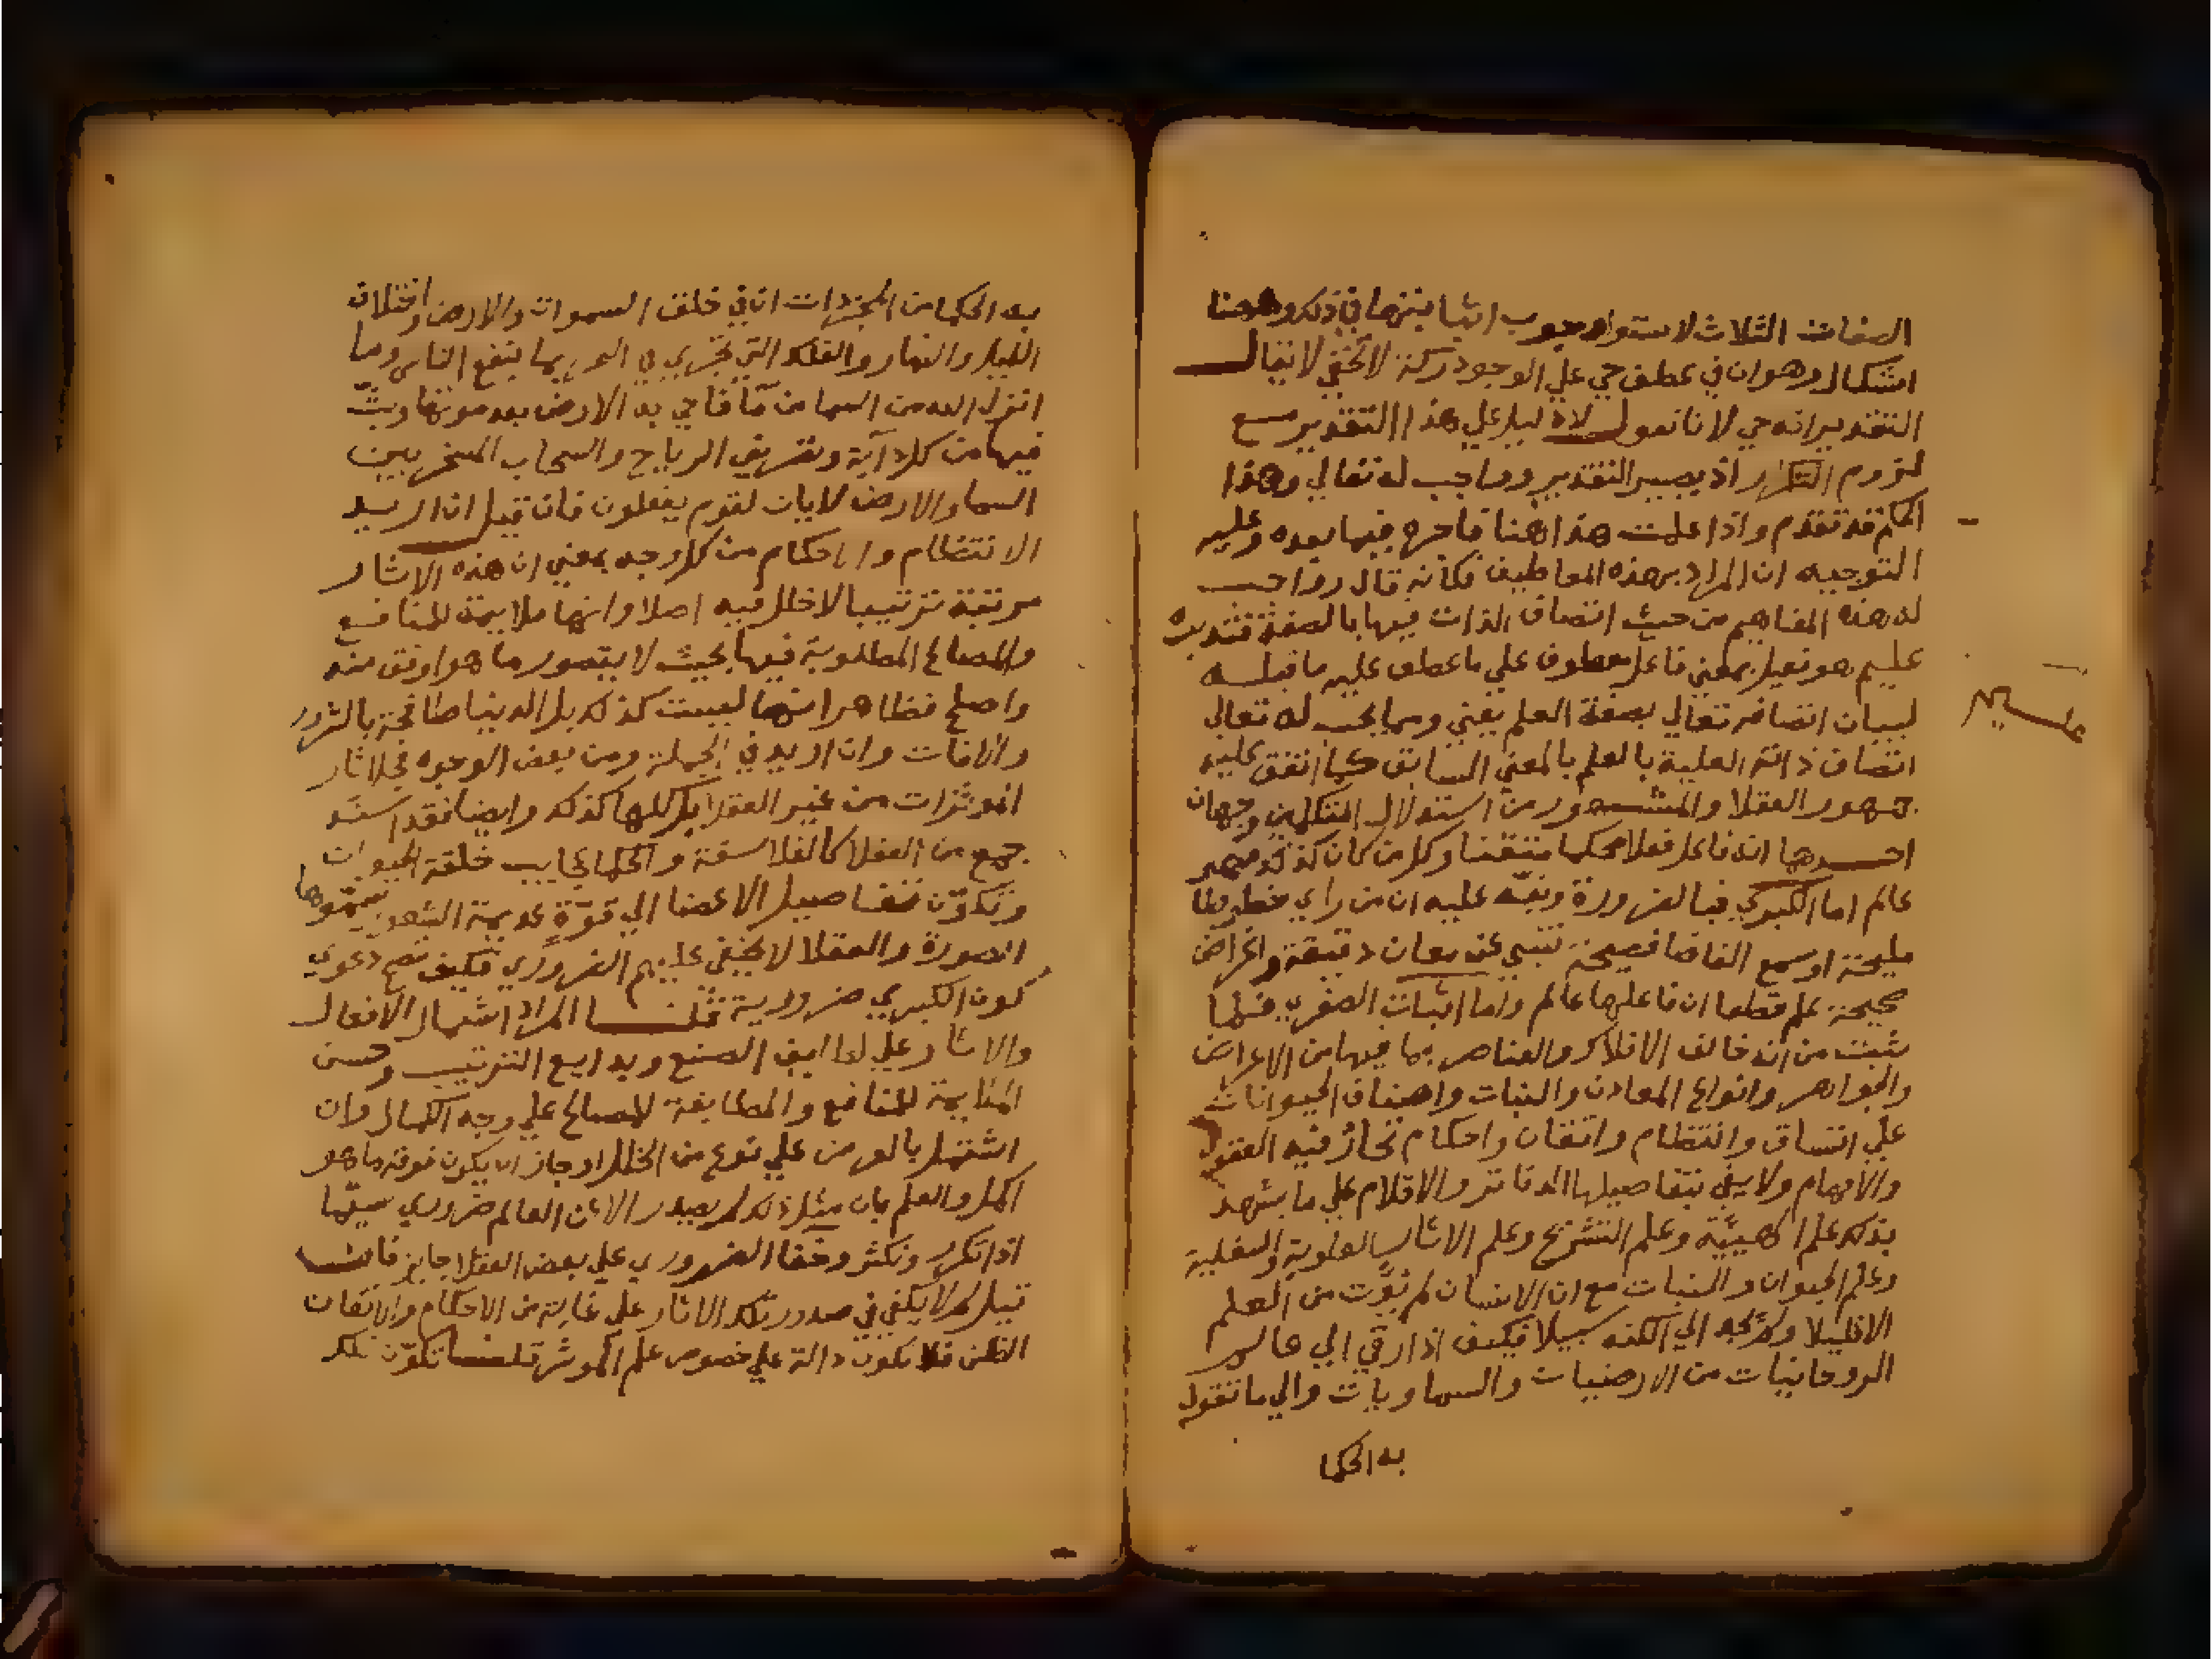 الصفات الثلاث لاستوا وجوب اتيا ينتها في ذلك وههنا
اشكال وهو ان في عطف حي علي الوجود ركة لا تخفي لا يقال
التقدير انه حي لانا نقول لا دليل علي هذا التقدير مع
لزوم التكرار اذ يصير التقدير وواجب له تعالي وهذا
الحكم قد تقدم واذا علمت هذا هنا فاجره فيما بعده وعليه
التوجيه ان المراد بهذه المعاطيف فكانه قال وواجب
له هذه المفاهيم من حيث اتصاف الذات فيها بالصفة فتدبره
عليم هو فعيل بمعني فاعل معطوف علي ما عطف عليه ما قبله
عليم
لبيان اتصافه تعالي بصفة العلم يعني ومما يجب له تعالي
اتصاف ذاته العلية بالعلم بالمعني السابق كما اتفق عليه
جمهور العقلا والمشهور من استدلال المتكلمين وجهان
احدها انه فاعل فعلا محكما متقنا وكل من كان كذلك فهو
عالم اما الكبري فبالضرورة وينبه عليه ان من راي خطوطا
مليحة او سمع الفاظا فصيحة تنبي عن معان دقيقة واغراض
صحيحة علم قطعا ان فاعلها عالم واما اثبات الصغري فلما
ثبت من انه خالف الافلاك والعناصر بما فيها من الاعراض
والجواهر وانواع المعادن والنبات واصناف الحيوانات
علي اتساق وانتظام واتقان واحكام تحار فيه العقول
والافهام ولا يفي بتفاصيلها الدفاتر والاقلام علي ما يشهد
بذلك علم الهيئة وعلم التشريح وعلم الاثار العلوية والسفلية
وعلم الحيوان والنبات مع ان الانسان لم يؤت من العلم
الا قليلا ولم يجد الي الكنه سبيلا فكيف اذا رقي الي عالم
الروحانيات من الارضيات والسماويات والي ما تقول
به الحكما
به الحكما من المجردات ان في خلق السموات والارض واختلاف
الليل والنهار والفلك التي تجري في البحر بما ينفع الناس وما
انزل الله من السما من ما فاحي به الارض بعد موتها وبث
فيها من كل دابة وتصريف الرياح والسحاب المسخر بين
السما والارض لايات لقوم يعقلون فان قيل ان اريد
الانتظام والاحكام من كل وجه بمعني ان هذه الاثار
مرتبة ترتيبا لا خلل فيه اصلا وانها ملايمة للمنافع
والمصالح المطلوبة فيها بحيث لا يتصور ما هو اوفق منه
واصلح فظاهر انها ليست كذلك بل الدنيا طافحة بالشرور
والافات وان اريد في الجملة ومن بعض الوجوه فجل اثار
المؤثرات من غير العقلا بل كلها كذلك وايضا فقد اسند
جمع من العقلا كالفلاسفة والحكما عجايب خلقة الحيوان
وتكون تفاصيل الاعضا الي قوة عديمة الشعور سموها
المصورة والعقلا لا يخفي عليهم الضروري فكيف تصح دعوي
كون الكبري ضرورية قلنا المراد اشتمال الافعال
والاثار علي لطايف الصنع وبدايع الترتيب وحسن
الملايمة للمنافع والمطابقة للمصالح علي وجه الكمال وان
اشتمل بالعرض علي نوع من الخلل او جاز ان يكون فوقه ما هو
اكمل والعلم بان مثل ذلك لم يصدر الا عن العالم ضروري سيما
اذا تكرر وتكثر وخفا الضروري علي بعض العقلا جايز فان
قيل لم لا يكفي في صدور تلك الاثار علي غاية من الاحكام والاتقان
الظن فلا تكون دالة علي خصوص علم المؤثر قلنا تكون تلك